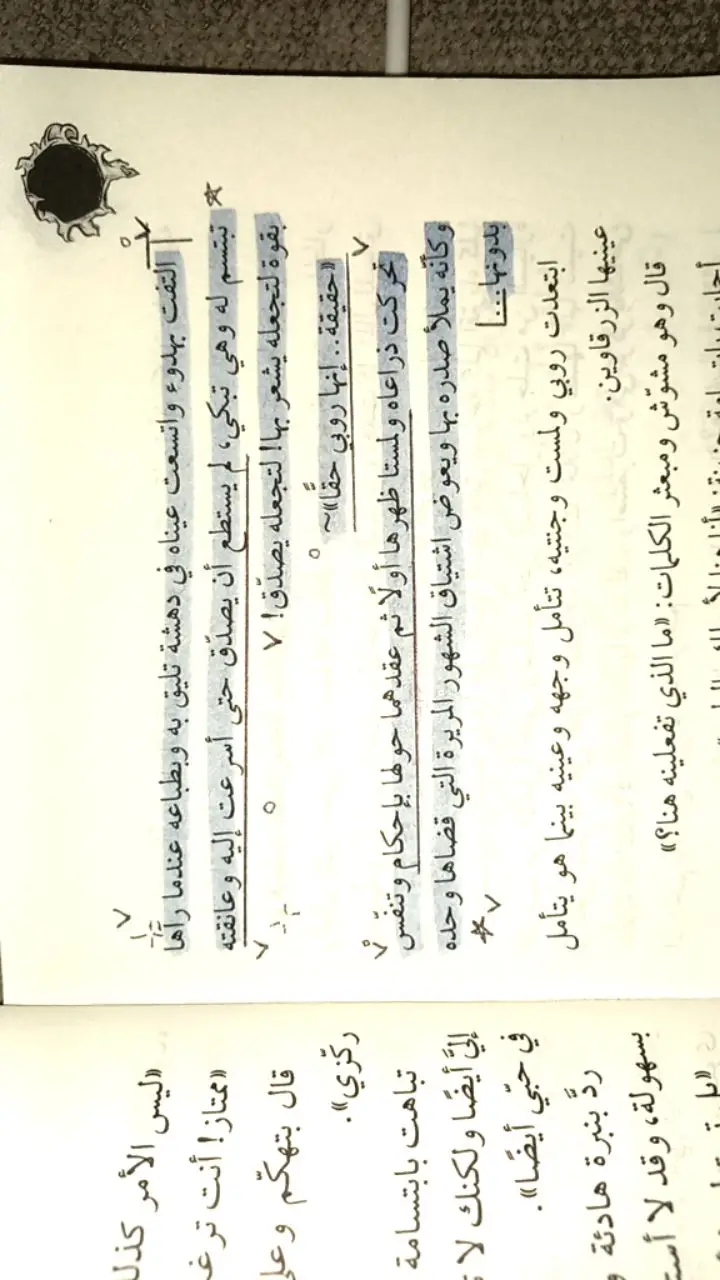 التفت بهدوء واتسعت عيناه في دهشة تليق به وبطباعه عندما رآها
تبتسم له وهي تبكي، لم يستطع أن يصدّق حتى أسرعت إليه وعانقته
بقوة لتجعله يشعر بها! لتجعله يصدّق!
«حقيقة.. إنها روبي حقًّا»~
تحركت ذراعاه ولمستا ظهرها أولًا ثم عقدهما حولها بإحكام وتنفّس
وكأنّه يملأ صدره بها ويعوض اشتياق الشهور المريرة التي قضاها وحده
بدونها...
ابتعدت روبي ولمست وجنتيه، تتأمل وجهه وعينيه بينما هو يتأمل
عينيها الزرقاوين.
قال وهو مشوّش ومبعثر الكلمات: «ما الذي تفعلينه هنا؟»
«ليس الأمر كذلك
«ممتاز! أنت ترغ
قال بتهكّم وعلى
ركّزي».
تباهت بابتسامة
إليَّ أيضًا ولكنك لا
في حبّي أيضًا».
ردَّ بنبرة هادئة
بسهولة، وقد لا أست